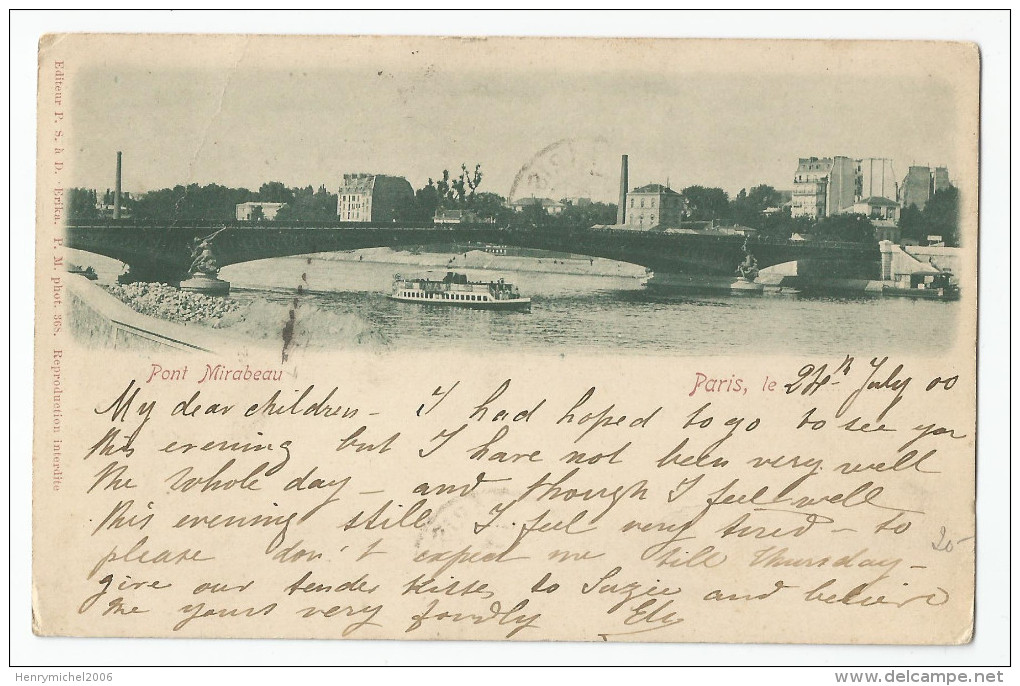 Editeur P. S. à D. Erika. P. M. phot. 368. Reproduction interdite
Pont Mirabeau
Paris, le 24th July 00
My dear children - I had hoped to go to see you
this evening but I have not been very well
the whole day - and though I feel well
this evening still I feel very tired - so
please don't expect me till Thursday -
give our tender kisses to Suzie and believe
me yours very fondly
20-
Henrymichel2006
www.delcampe.net